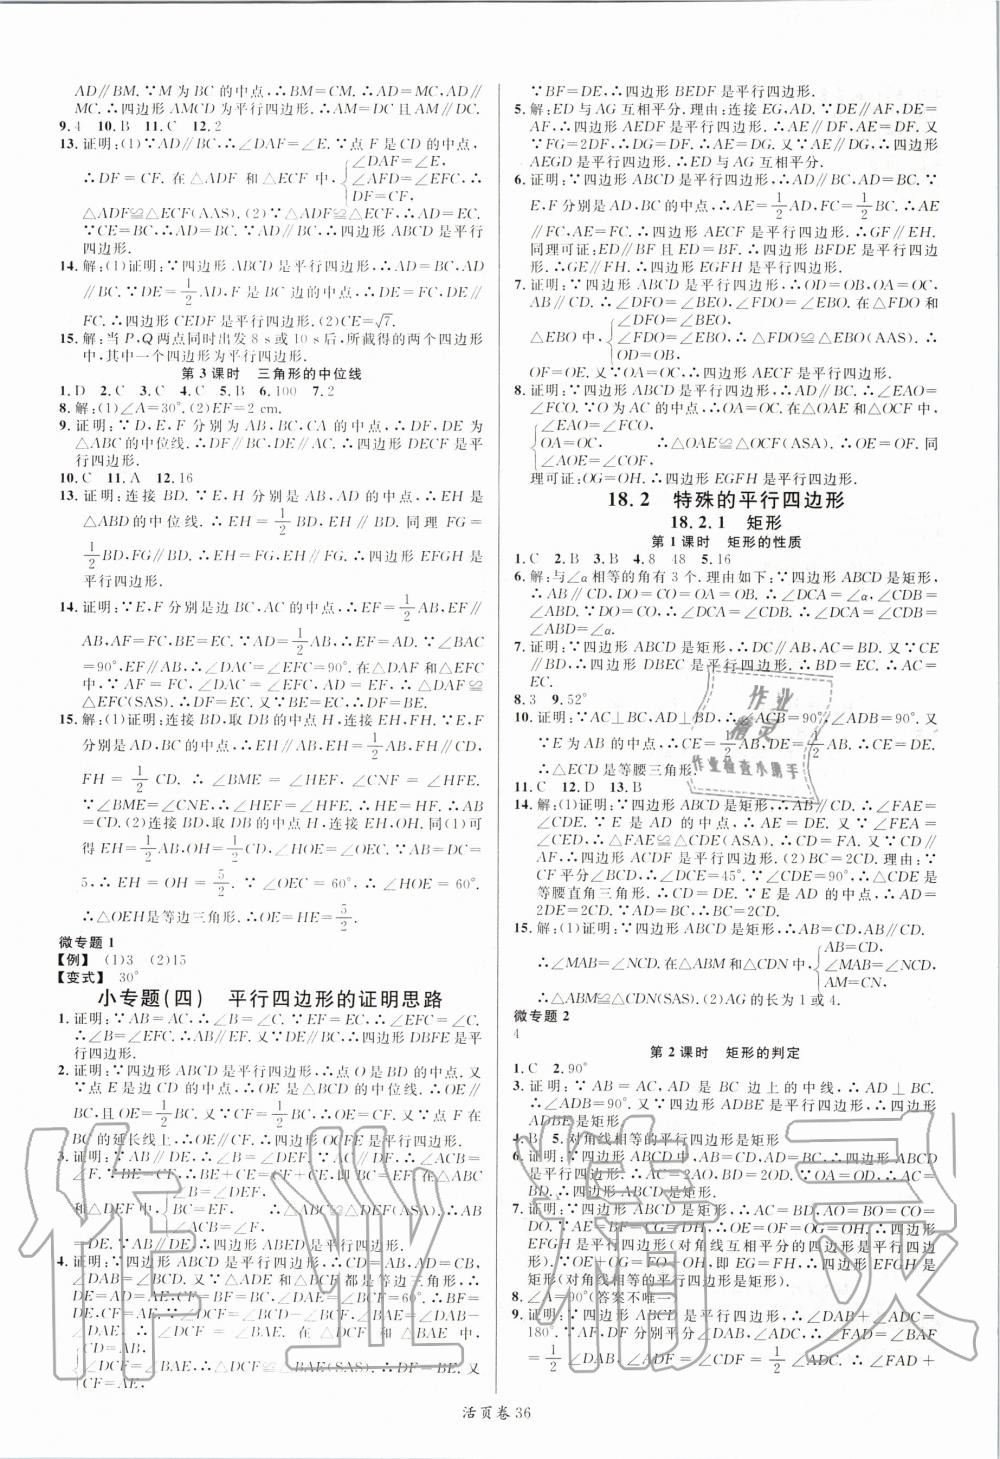 AD∥BM.∵M 为 BC 的中点,∴BM=CM.∴AD=MC,AD∥
MC.∴四边形 AMCD 为平行四边形.∴AM=DC 且 AM∥DC.
9.4 10.B 11.C 12.2
13.证明:(1)∵AD∥BC,∴∠DAF=∠E.∵点 F 是 CD 的中点,
∴DF=CF.在△ADF 和△ECF 中,{∠DAF=∠E, ∠AFD=∠EFC,∴ DF=CF.
△ADF≌△ECF(AAS).(2)∵△ADF≌△ECF,∴AD=EC.
∵CE=BC,∴AD=BC.∵AD∥BC,∴四边形 ABCD 是平行
四边形.
14.解:(1)证明:∵四边形 ABCD 是平行四边形,∴AD∥BC,AD=
BC.∵DE=1/2AD,F 是 BC 边的中点,∴DE=FC,DE∥
FC.∴四边形 CEDF 是平行四边形.(2)CE=√7.
15.解:当 P,Q 两点同时出发 8 s 或 10 s 后,所截得的两个四边形
中,其中一个四边形为平行四边形.
第 3 课时 三角形的中位线
1.D 2.C 3.C 4.C 5.B 6.100 7.2
8.解:(1)∠A=30°.(2)EF=2 cm.
9.证明:∵D,E,F 分别为 AB,BC,CA 的中点,∴DF,DE 为
△ABC 的中位线.∴DF∥BC,DE∥AC.∴四边形 DECF 是平
行四边形.
10.C 11.A 12.16
13.证明:连接 BD.∵E,H 分别是 AB,AD 的中点,∴EH 是
△ABD 的中位线.∴EH=1/2BD,EH∥BD.同理 FG=
1/2BD,FG∥BD.∴EH=FG,EH∥FG.∴四边形 EFGH 是
平行四边形.
14.证明:∵E,F 分别是边 BC,AC 的中点,∴EF=1/2AB,EF∥
AB,AF=FC,BE=EC.∵AD=1/2AB,∴AD=EF.∵∠BAC
=90°,EF∥AB,∴∠DAC=∠EFC=90°.在△DAF 和△EFC
中,AD=FE,∠DAF=∠EFC,AF=FC,∴△DAF≌
△EFC(SAS).∴DF=EC.又∵BE=EC,∴DF=BE.
15.解:(1)证明:连接 BD,取 DB 的中点 H,连接 EH,FH.∵E,F
分别是 BC,AD 的中点,∴EH=1/2AB,EH∥AB,FH∥CD,
FH=1/2CD.∴∠BME=∠HEF,∠CNE=∠HFE.
∵∠BME=∠CNE,∴∠HEF=∠HFE.∴HE=HF.∴AB
=CD.(2)连接 BD,取 DB 的中点 H,连接 EH,OH.同(1)可
得 EH=1/2AB,OH=1/2CD,∠OEH=∠OEC.∵AB=DC=
5,∴EH=OH=5/2.∵∠OEC=60°,∴∠OEH=60°.
∴△OEH是等边三角形.∴OE=HE=5/2.
微专题 1
【例】 (1)3 (2)15
【变式】 30°
小专题(四) 平行四边形的证明思路
1.证明:∵AB=AC,∴∠B=∠C.∵EF=EC,∴∠EFC=∠C.
∴∠B=∠EFC.∴AB∥EF.又∵DE∥BC,∴四边形 DBFE 是平
行四边形.
2.证明:∵四边形 ABCD 是平行四边形,∴点 O 是 BD 的中点.又
∵点 E 是边 CD 的中点,∴OE 是△BCD 的中位线.∴OE∥
BC,且 OE=1/2BC.又∵CF=1/2BC,∴OE=CF.又∵点 F 在
BC 的延长线上,∴OE∥CF.∴四边形 OCFE 是平行四边形.
3.证明:∵AB∥DE,∴∠B=∠DEF.∵BE=CF,∴BE+CE=CF+
CE,即 BC=EF.在△ABC 和△DEF 中,{∠ACB=∠F, BC=EF, ∠B=∠DEF, ∴△ABC≌△DEF(ASA).∴AB
=DE.∵AB∥DE,∴四边形 ABED 是平行四边形.
4.证明:∵△ABC 是等边三角形,∴AC=AB=CB,∠CAB=
∠DCF=∠ABC=60°.又∵△ADE 和△CDF 都是等边三角形,∴
DE=AD=AE,CF=DC=DF,∠DAE=∠DCF=60°.∴
CF=AE.∵∠DCF=∠BCD-∠BCF,∠BAE=∠DAB-
∠DAE,∴∠DCF=∠BAE.在△DCF 和△BAE 中,{CD=AB, ∠DCF=∠BAE, CF=AE, ∴△DCF≌△BAE(SAS).∴DF=BE.又
∵BF=DE,∴四边形 BEDF 是平行四边形.
5.解:ED 与 AG 互相平分.理由:连接 EG,AD.∵DE∥AF,DE=
AF,∴四边形 AEDF 是平行四边形.∴AE∥DF,AE=DF.又
∵FG=2DF,∴DG=DF.∴AE=DG.又∵AE∥DG,∴四边形
AEGD 是平行四边形.∴ED 与 AG 互相平分.
6.证明:∵四边形 ABCD 是平行四边形,∴AD∥BC,AD=BC.∵
E,F 分别是 AD,BC 的中点,∴AE=1/2AD,FC=1/2BC.∴AE
∥FC,AE=FC.∴四边形 AECF 是平行四边形.∴GF∥EH.
同理可证:ED∥BF 且 ED=BF.∴四边形 BFDE 是平行四边
形.∴GE∥FH.∴四边形 EGFH 是平行四边形.
7.证明:∵四边形 ABCD 是平行四边形,∴OD=OB,OA=OC,
AB∥CD.∴∠DFO=∠BEO,∠FDO=∠EBO.在△FDO 和
△EBO 中,{∠DFO=∠BEO, ∠FDO=∠EBO, OD=OB, ∴△FDO≌△EBO(AAS).∴
OF=OE.∴四边形 AECF 是平行四边形.
8.证明:∵四边形 ABCD 是平行四边形,∴AD∥BC.∴∠EAO=
∠FCO.∵O 为 AC 的中点,∴OA=OC.在△OAE 和△OCF 中,
{∠EAO=∠FCO, OA=OC, ∠AOE=∠COF, ∴△OAE≌△OCF(ASA).∴OE=OF.同
理可证:OG=OH.∴四边形 EGFH 是平行四边形.
18.2 特殊的平行四边形
18.2.1 矩形
第 1 课时 矩形的性质
1.C 2.B 3.B 4.8 48 5.16
6.解:与∠α 相等的角有 3 个.理由如下:∵四边形 ABCD 是矩形,
∴AB∥CD,DO=CO=OA=OB.∴∠DCA=∠α,∠CDB=
∠ABD.∵DO=CO,∴∠DCA=∠CDB.∴∠DCA=∠CDB=
∠ABD=∠α.
7.证明:∵四边形 ABCD 是矩形,∴DC∥AB,AC=BD.又∵CE
∥BD,∴四边形 DBEC 是平行四边形.∴BD=EC.∴AC=CE.
8.3 9.52°
10.证明:∵AC⊥BC,AD⊥BD,∴∠ACB=90°,∠ADB=90°.又
∵E 为 AB 的中点,∴CE=1/2AB,DE=1/2AB.∴CE=DE.
∴△ECD 是等腰三角形.
11.C 12.D 13.B
14.解:(1)证明:∵四边形 ABCD 是矩形,∴AB∥CD.∴∠FAE=
∠CDE.∵E 是 AD 的中点,∴AE=DE.又∵∠FEA=
∠CED,∴△FAE≌△CDE(ASA).∴CD=FA.又∵CD∥
AF,∴四边形 ACDF 是平行四边形.(2)BC=2CD.理由:∵
CF 平分∠BCD,∴∠DCE=45°.∵∠CDE=90°,∴△CDE 是
等腰直角三角形.∴CD=DE.∵E 是 AD 的中点,∴AD=
2DE=2CD.∵AD=BC,∴BC=2CD.
15.解:(1)证明:∵四边形 ABCD 是矩形,∴AB=CD,AD=BC,
∴△ABN≌△CDM(SAS).(2)AG 的长为 1 或 4.
微专题 2
4
第 2 课时 矩形的判定
1.C 2.90°
3.证明:∵AB=AC,AD 是 BC 边上的中线,∴AD⊥BC.
∴∠ADB=90°.又∵四边形 ADBE 是平行四边形,∴四边形
ADBE 是矩形.
4.B 5.对角线相等的平行四边形是矩形
∴AC=2AO,BD=2OD.∴AC=
BD.∴四边形 ABCD 是矩形.
7.证明:∵四边形 ABCD 是矩形,∴AC=BD,AO=BO=CO=
DO.∵AE=BF=CG=DH,∴OE=OF=OG=OH.∴四边形
EFGH 是平行四边形(对角线互相平分的四边形是平行四边
形).∵OE+OG=FO+OH,即 EG=FH,∴四边形 EFGH 是
矩形(对角线相等的平行四边形是矩形).
8.∠A=90°(答案不唯一)
9.证明:∵四边形 ABCD 是平行四边形,∴∠DAB+∠ADC=
180°.∵AF,DF 分别平分∠DAB,∠ADC,∴∠FAD=∠BAF
=1/2∠DAB,∠ADF=∠CDF=1/2∠ADC.∴∠FAD+
活页卷 36
作业精灵
作业检查小助手
作业精灵